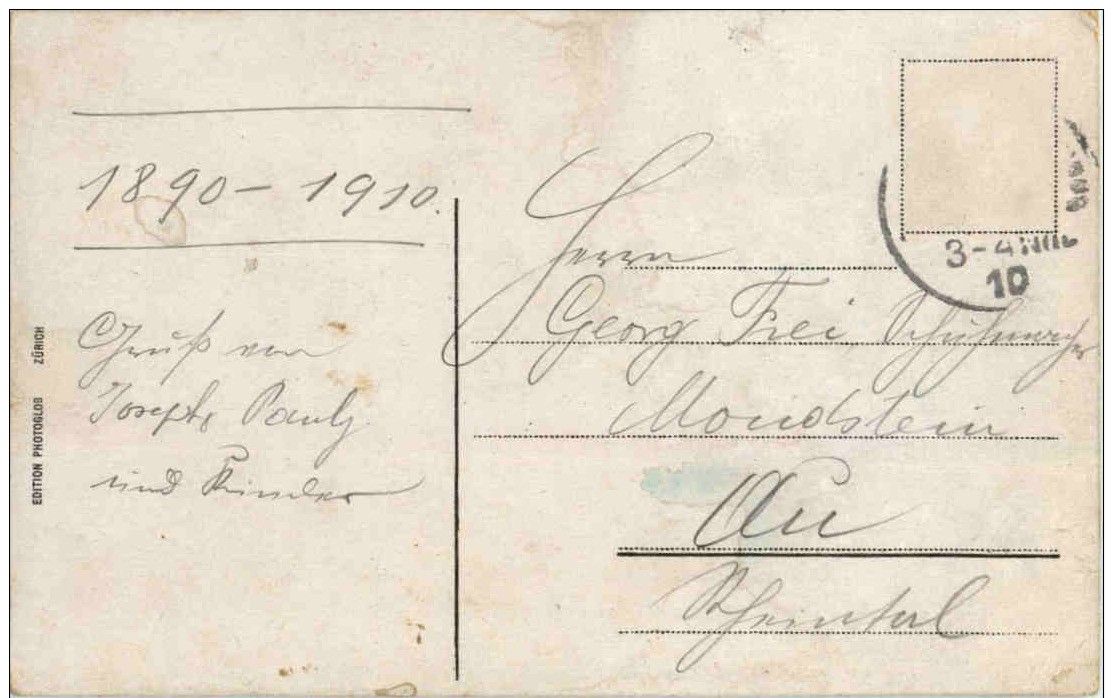 1890 – 1910.
Gruß von
Joseph, Pauly
und Kinder
EDITION PHOTOGLOB ZÜRICH
3-4
10
Herrn
Georg Frei Schuhmacher
Monstein
Au
Rheintal